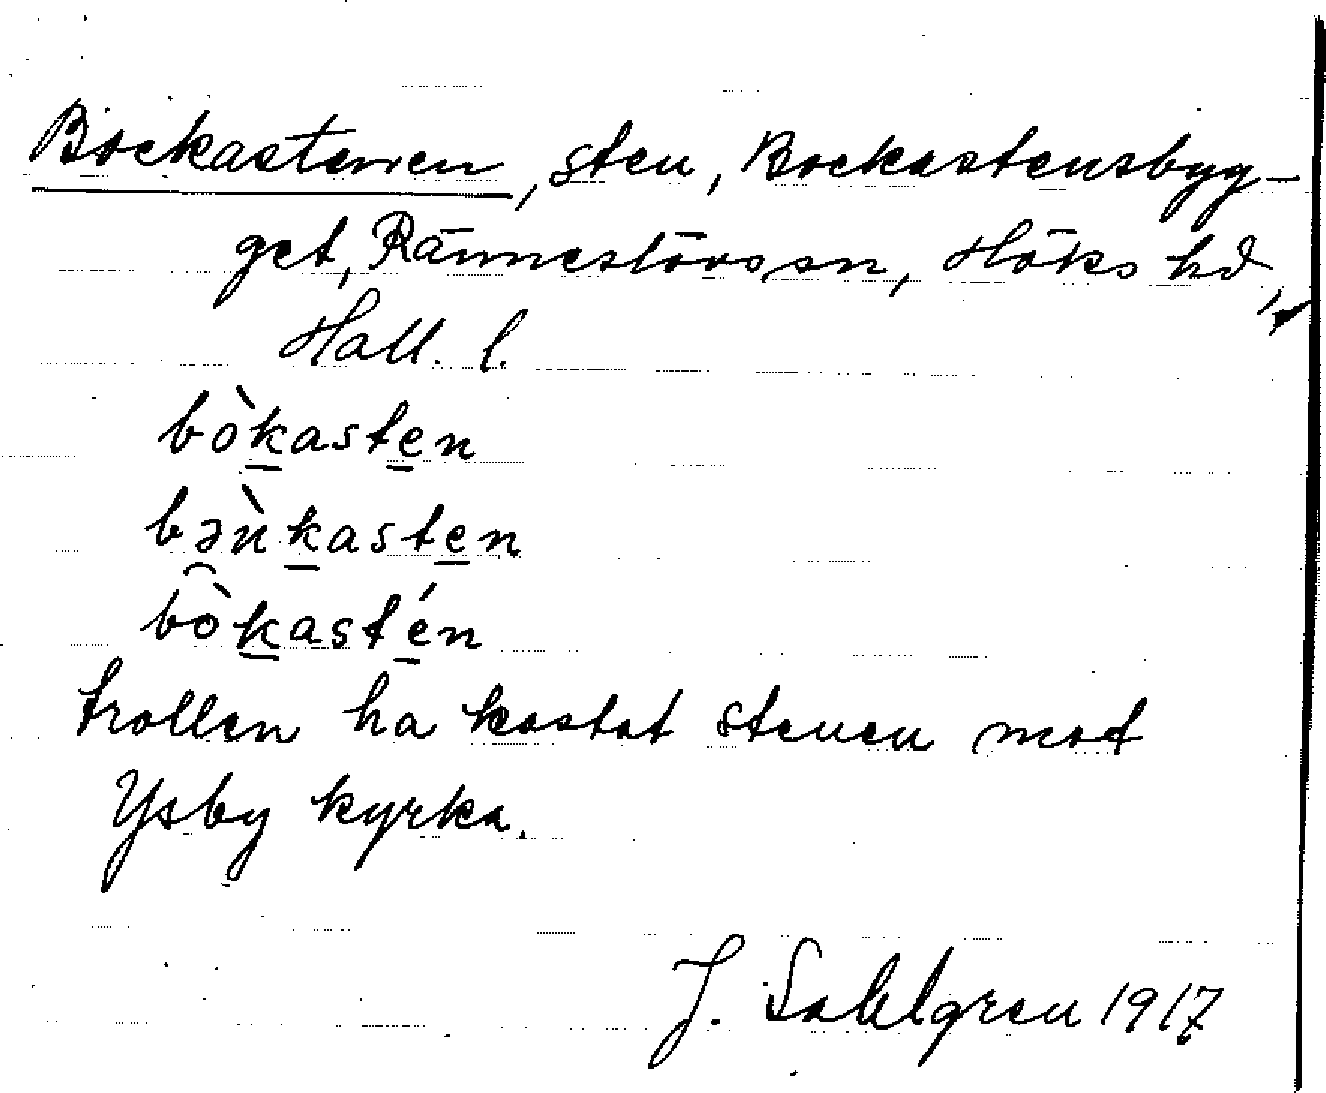 Bockastenen, sten, Bockastensbyg-
get, Ränneslövs sn, Höks hd,
Hall. l.
bòkasten
bəùkasten
bòkastén
trollen ha kastat stenen mot
Ysby kyrka.
J. Sahlgren 1917